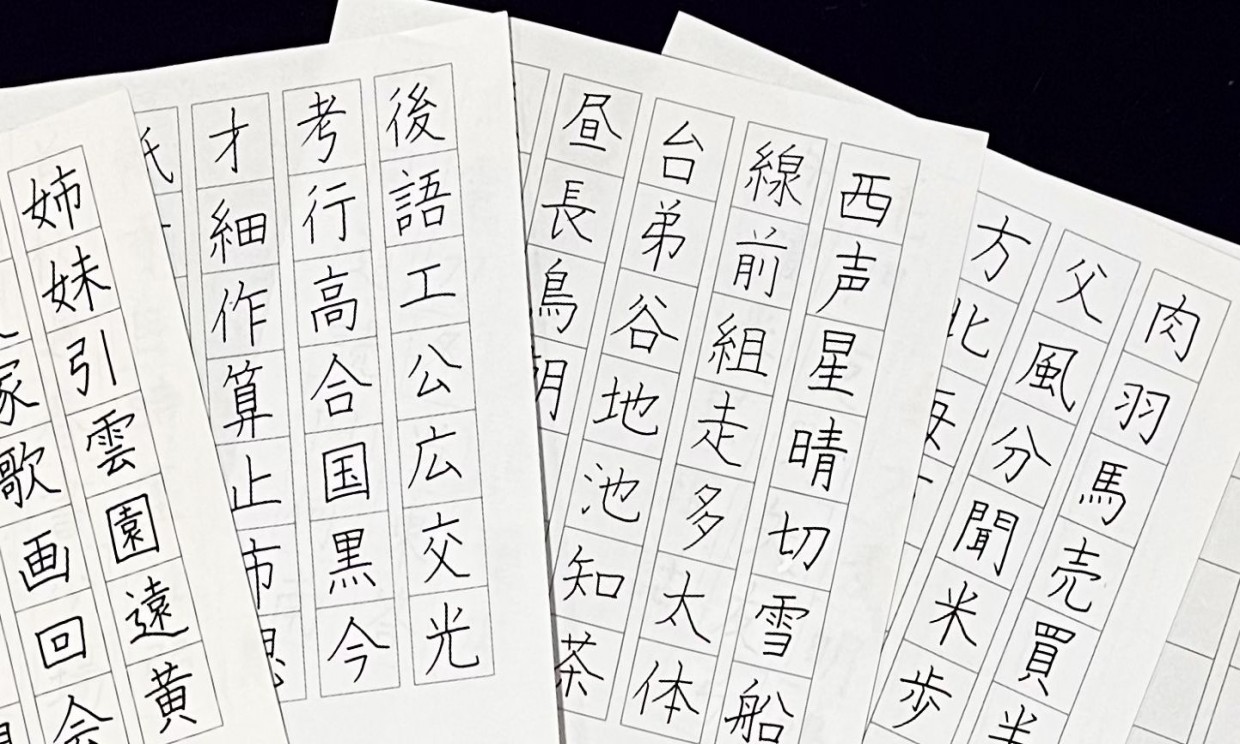 姉妹引雲園遠黄
家歌画回会
後語工公広交光
考行高合国黒今
才細作算止市思
紙
西声星晴切雪船
線前組走多太体
台弟谷地池知茶
昼長鳥朝
肉羽馬売買半
父風分聞米歩
方北